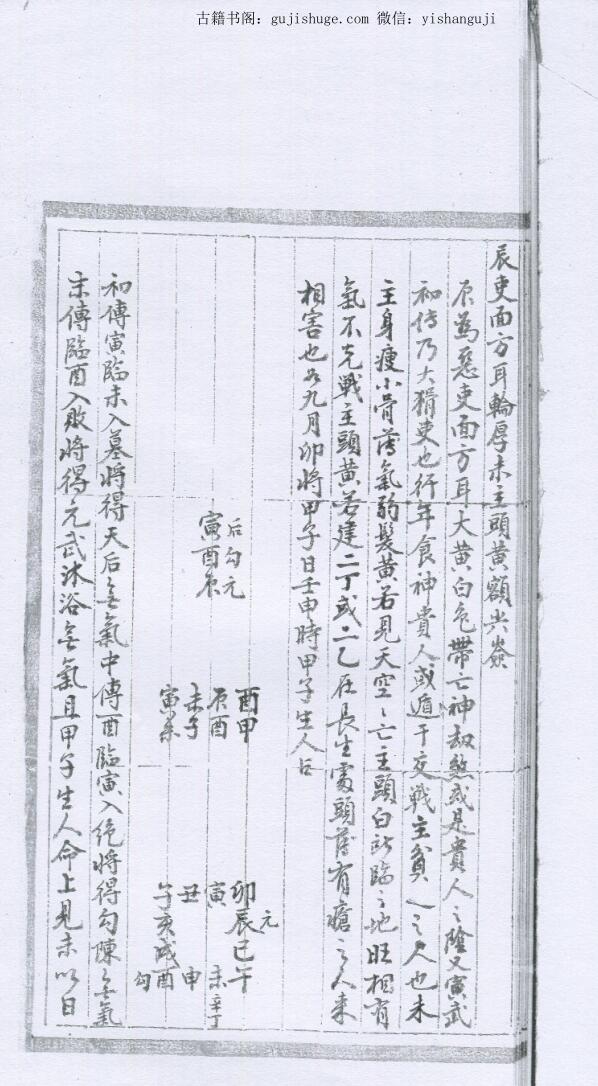 古籍书阁：gujishuge.com 微信：yishanguji
辰吏面方耳輪厚未主頭黃額尖
辰為惡吏面方耳大黃白色帶亡神劫煞或是貴人之陰又寅武
初傳乃大猾吏也行年食神貴人或遁干交戰主貧人之人也未
主身瘦小骨薄氣弱髮黃若見天空空亡主頭白所臨之地旺相有
氣不克戰主頭黃若建二丁或二乙在長生處頭舊有瘡之人来
相害也如九月卯將甲子日壬申時甲子生人占
后勾元
寅酉辰
酉甲
辰酉
未子
寅未
卯辰巳午
寅 未
丑 申
子亥戌酉
元
勾
辛丁
初傳寅臨未入墓將得天后無氣中傳酉臨寅入絶將得勾陳無氣
末傳臨酉入敗將得元武沐浴無氣且甲子生人命上見未以日